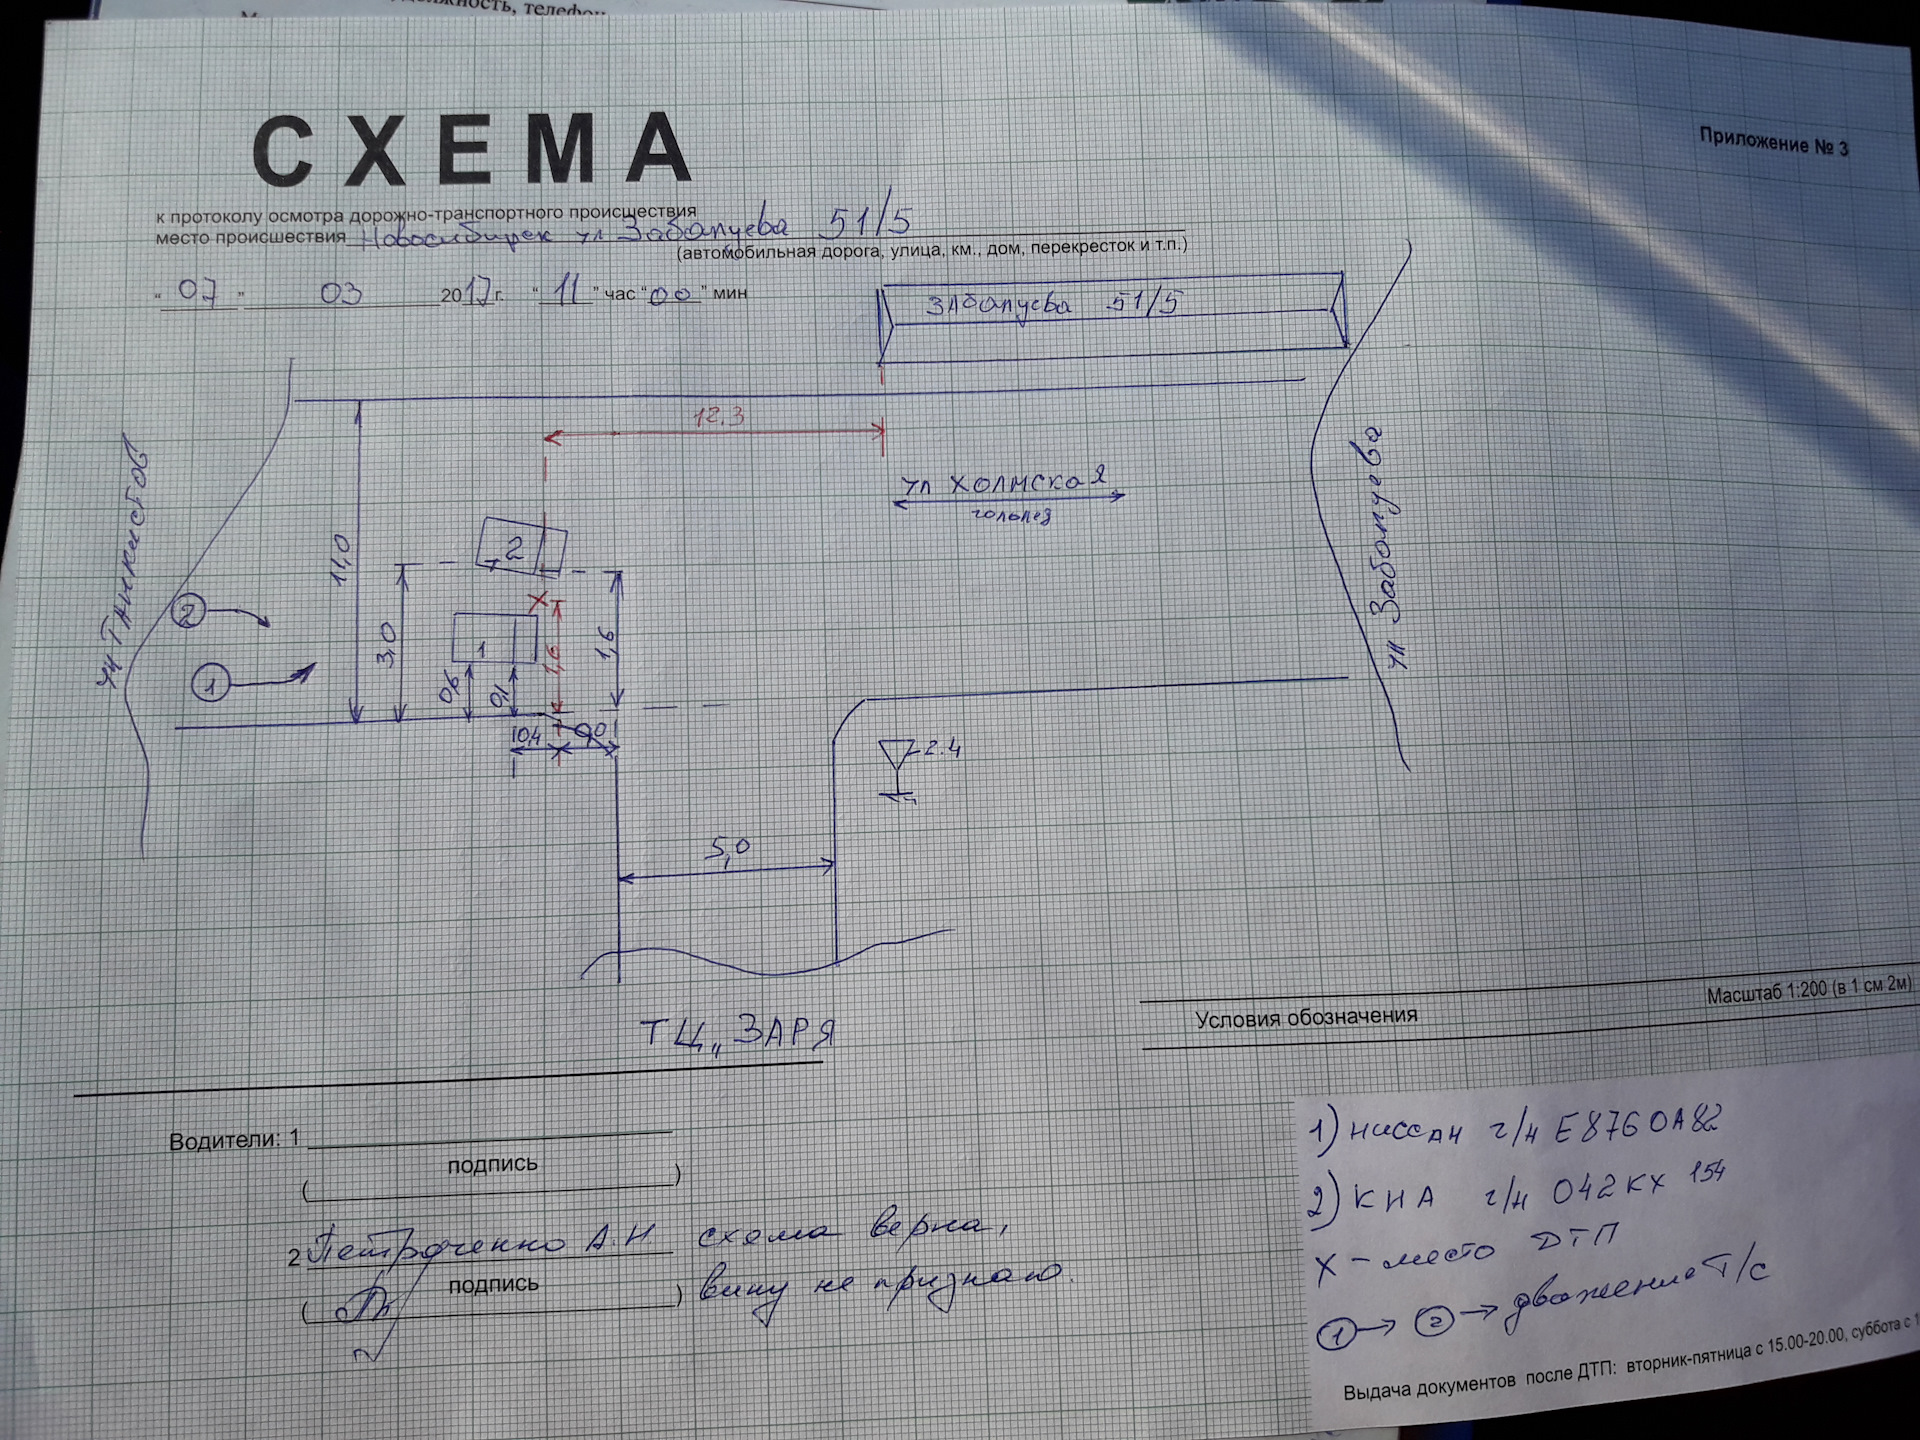 должность, телефон
СХЕМА
Приложение № 3
к протоколу осмотра дорожно-транспортного происшествия
место происшествия Новосибирск ул Забалуева 51/5
(автомобильная дорога, улица, км., дом, перекресток и т.п.)
"07" 03 2017г. "11" час "00" мин
ЗАбалуева 51/5
12.3
ул ХОЛМСКАЯ
гололед
ул ТАНКИСТОВ
ул Забалуева
11,0
2
3,0
X
1
1,6
1,6
2
1
0,4
2.4
5,0
ТЦ „ЗАРЯ
Масштаб 1:200 (в 1 см 2м)
Условия обозначения
Водители: 1
подпись
( )
2 Петроченко А.Н схема верна,
подпись
( ) вину не признаю.
1) НИССАН г/н Е876ОА82
2) КИА г/н О42КХ 154
X - место ДТП
1 → 2 → движение Т/с
Выдача документов после ДТП: вторник-пятница с 15.00-20.00, суббота с 1